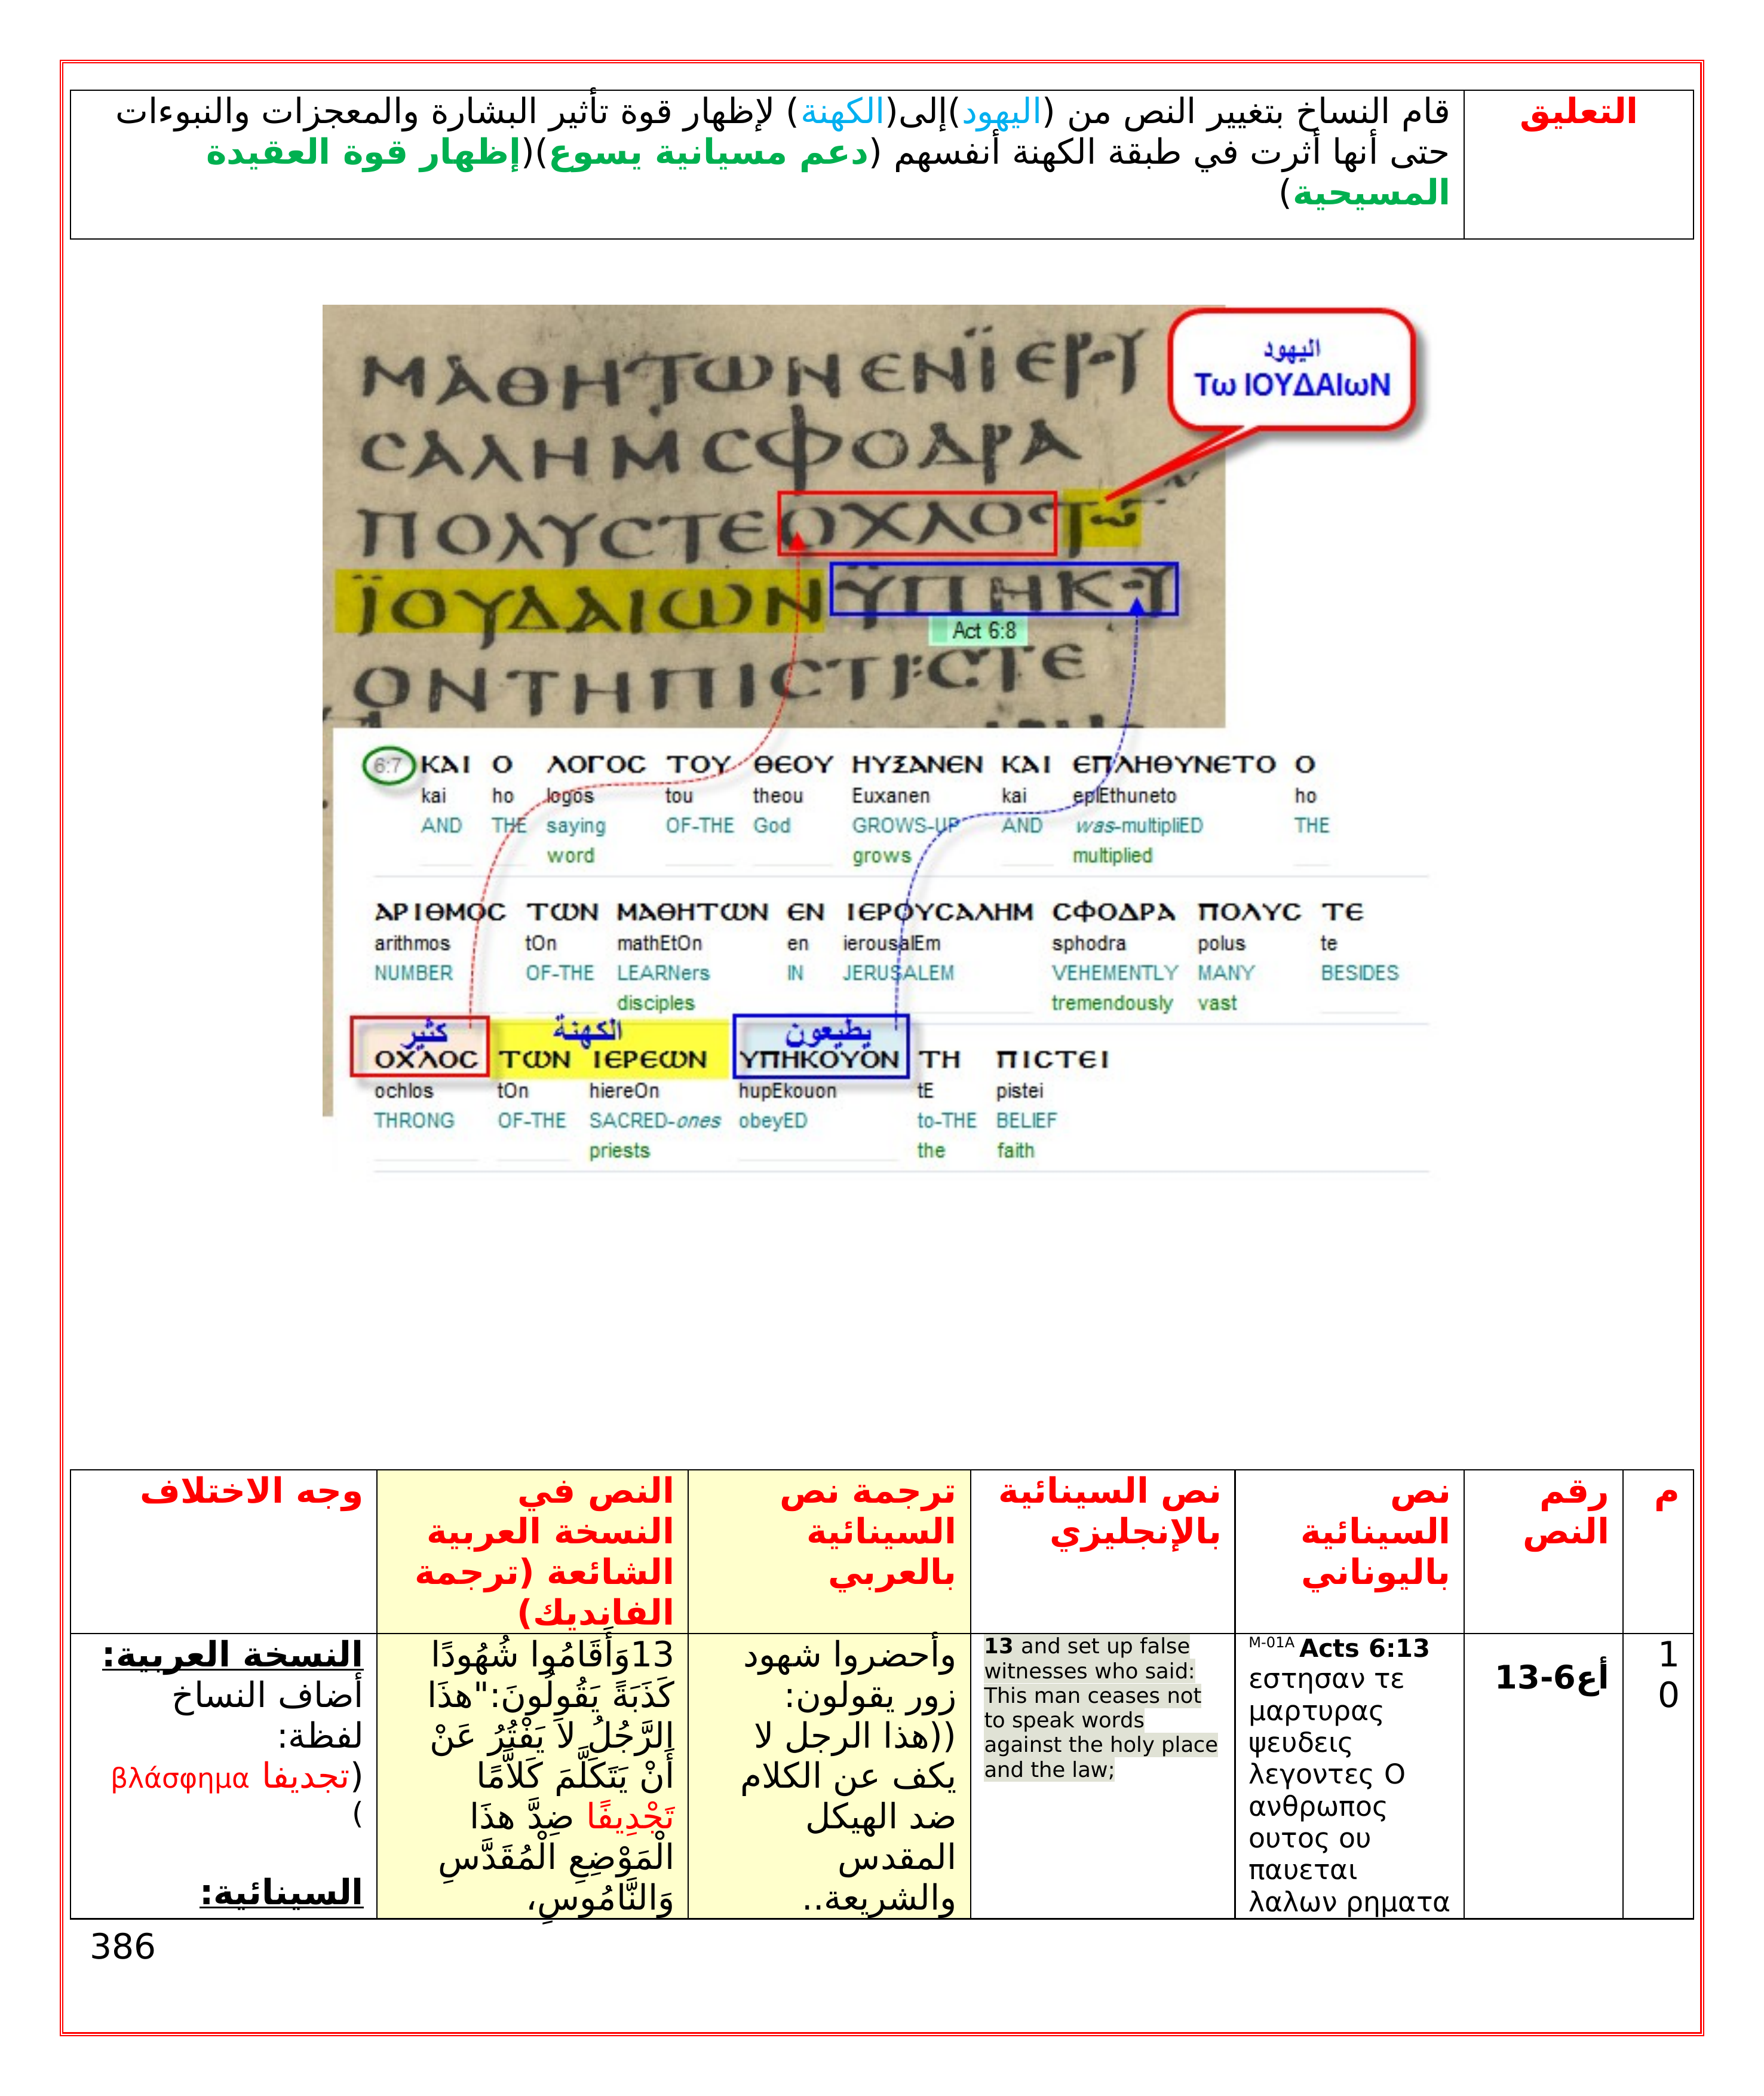 التعليق
قام النساخ بتغيير النص من (اليهود)إلى(الكهنة) لإظهار قوة تأثير البشارة والمعجزات والنبوءات
حتى أنها أثرت في طبقة الكهنة أنفسهم (دعم مسيانية يسوع)(إظهار قوة العقيدة
المسيحية)
اليهود
Τω ΙΟΥΔΑΙωΝ
ΜΑΘΗΤΩΝΕΝΪΕΡΥ
ϹΑΛΗΜϹΦΟΔΡΑ
ΠΟΛΥϹΤΕΟΧΛΟϹΤω
ΪΟΥΔΑΙΩΝΫΠΗΚΥ
Act 6:8
ΟΝΤΗΠΙϹΤΙ:ϹΤΕ
6:7 ΚΑΙ Ο ΛΟΓΟϹ ΤΟΥ ΘΕΟΥ ΗΥΞΑΝΕΝ ΚΑΙ ΕΠΛΗΘΥΝΕΤΟ Ο
kai ho logos tou theou Euxanen kai eplEthuneto ho
AND THE saying OF-THE God GROWS-UP AND was-multipliED THE
word grows multiplied
ΑΡΙΘΜΟϹ ΤΩΝ ΜΑΘΗΤΩΝ ΕΝ ΙΕΡΟΥϹΑΛΗΜ ϹΦΟΔΡΑ ΠΟΛΥϹ ΤΕ
arithmos tOn mathEtOn en ierousalEm sphodra polus te
NUMBER OF-THE LEARNers IN JERUSALEM VEHEMENTLY MANY BESIDES
disciples tremendously vast
كثير الكهنة يطيعون
ΟΧΛΟϹ ΤΩΝ ΙΕΡΕΩΝ ΥΠΗΚΟΥΟΝ ΤΗ ΠΙϹΤΕΙ
ochlos tOn hiereOn hupEkouon tE pistei
THRONG OF-THE SACRED-ones obeyED to-THE BELIEF
priests the faith
م
رقم
النص
نص
السينائية
باليوناني
نص السينائية
بالإنجليزي
ترجمة نص
السينائية
بالعربي
النص في
النسخة العربية
الشائعة (ترجمة
الفانديك)
وجه الاختلاف
1
0
أع6-13
M-01A Acts 6:13
εστησαν τε
μαρτυρας
ψευδεις
λεγοντες Ο
ανθρωπος
ουτος ου
παυεται
λαλων ρηματα
13 and set up false
witnesses who said:
This man ceases not
to speak words
against the holy place
and the law;
وأحضروا شهود
زور يقولون:
((هذا الرجل لا
يكف عن الكلام
ضد الهيكل
المقدس
والشريعة..
13وَأَقَامُوا شُهُودًا
كَذَبَةً يَقُولُونَ:"هذَا
الرَّجُلُ لاَ يَفْتُرُ عَنْ
أَنْ يَتَكَلَّمَ كَلاَمًا
تَجْدِيفًا ضِدَّ هذَا
الْمَوْضِعِ الْمُقَدَّسِ
وَالنَّامُوسِ،
النسخة العربية:
أضاف النساخ
لفظة:
(تجديفا βλάσφημα
)
السينائية:
386